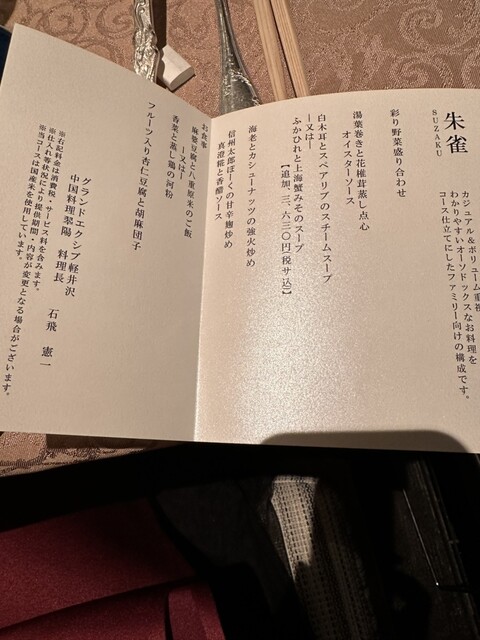 朱雀
SUZAKU
カジュアル＆ボリューム重視
わかりやすいオーソドックスなお料理を
コース仕立てにしたファミリー向けの構成です。
彩り野菜盛り合わせ
湯葉巻きと花椎茸蒸し点心
オイスターソース
白木耳とスペアリブのスチームスープ
―又は―
ふかひれと上海蟹みそのスープ
【追加、三、六三〇円(税サ込)】
海老とカシューナッツの強火炒め
信州太郎ぽーくの甘辛麹炒め
真澄糀と香醋ソース
お食事
麻婆豆腐と八重原米のご飯
―又は―
香菜と蒸し鶏の河粉
フルーツ入り杏仁豆腐と胡麻団子
グランドエクシブ軽井沢
中国料理翠陽　料理長　石飛　憲一
※右記料金は消費税・サービス料を含みます。
※仕入れ等状況により提供期間・内容が変更となる場合がございます。
※当コースは国産米を使用しています。